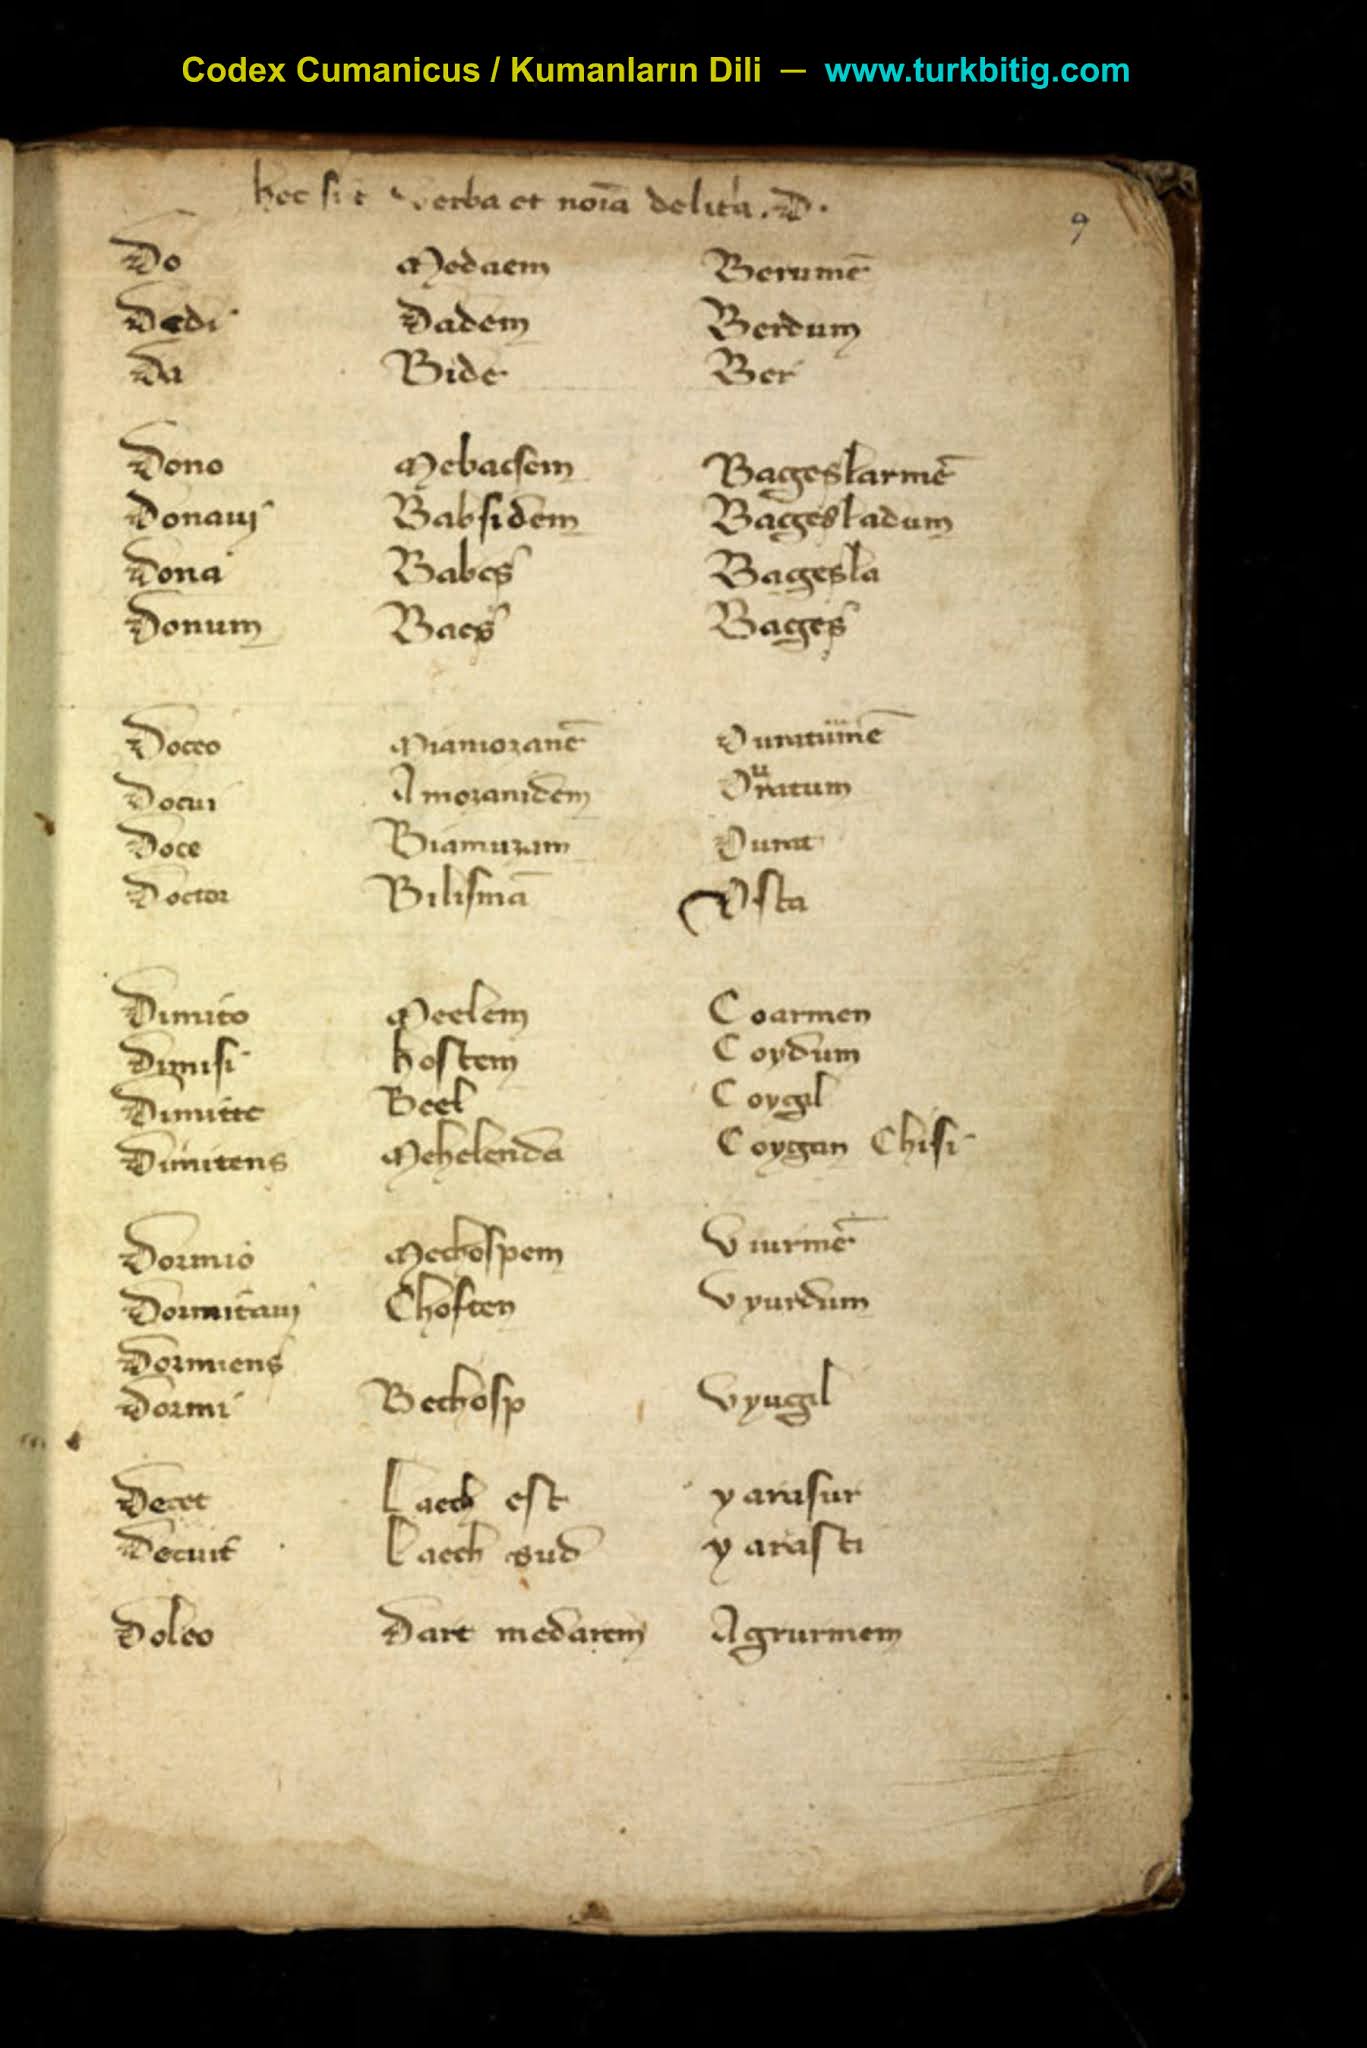 Codex Cumanicus / Kumanların Dili — www.turkbitig.com
hec sūt verba et noīa de lit̄a. D.
9
Do Medaem Berumē
Dedi Dadem Berdum
Da Bide Ber
Dono Mebacsem Bageslarmē
Donauj Babsidem Bagesladum
Dona Babcs Bagesla
Donum Bacs Bages
Doceo Miamozanē Ouratumē
Docui Amozanidem Ouratum
Doce Biamuzam Ourat
Doctor Bilismā Osta
Dimito Meelem Coarmen
Dimisi hostem Coydum
Dimitte Beel Coygil
Dimitens Mehelenda Coygan Chisi
Dormio Mechospem Viurmē
Dormitauj Choften Vyurdum
Dormiens
Dormi Bechosp Vyugil
Decet Laech est yarasur
Decuit Laech sud yarasti
Doleo Dart medarem Agrurmem